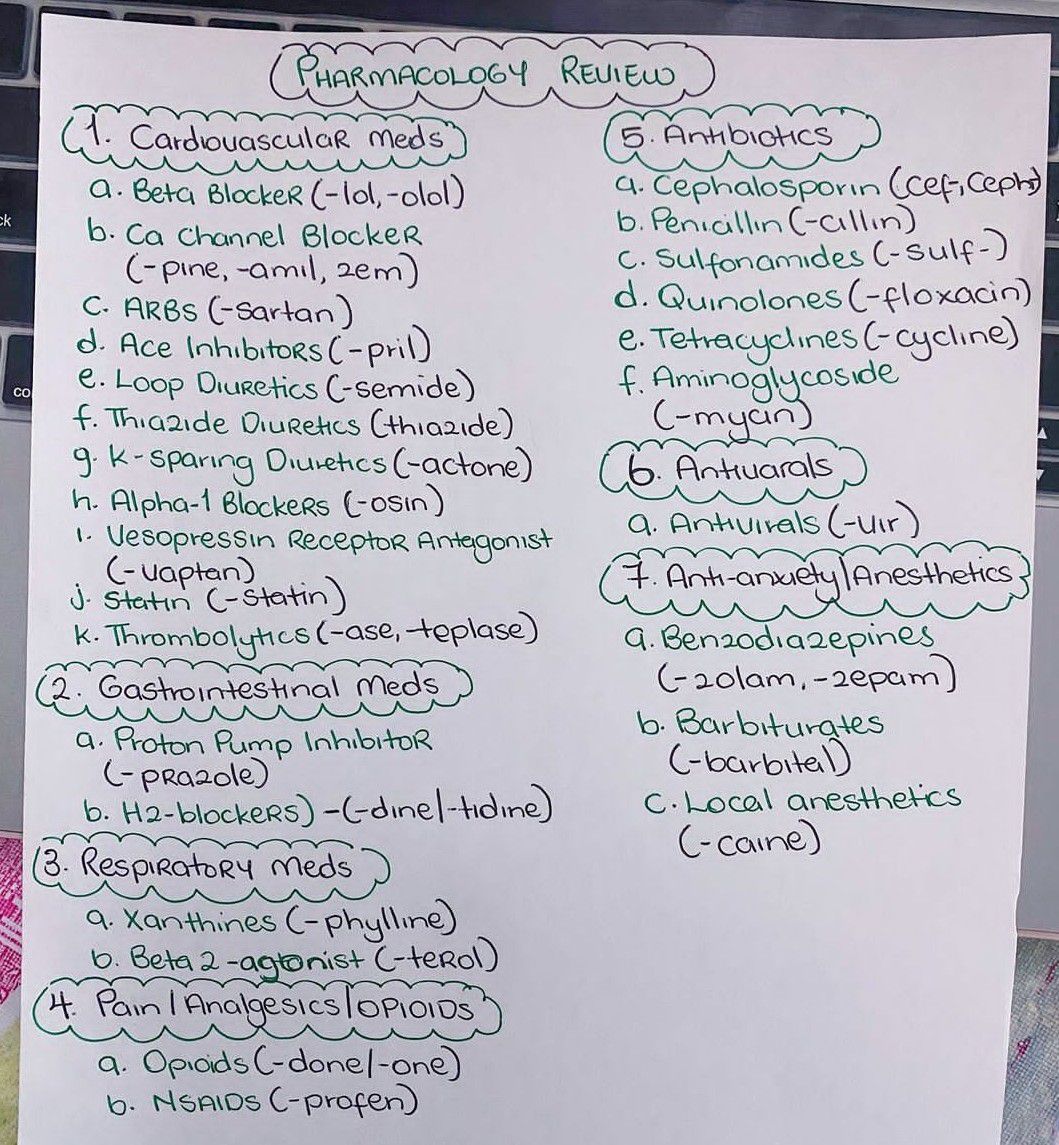 PHARMACOLOGY REVIEW
1. Cardiovascular Meds
a. Beta Blocker (-lol, -olol)
b. Ca Channel Blocker
(-pine, -amil, zem)
C. ARBS (-Sartan)
d. Ace Inhibitors (-pril)
e. Loop Diuretics (-semide)
f. Thiazide Diuretics (thiazide)
g. K-sparing Diuretics (-actone)
h. Alpha-1 Blockers (-osin)
i. Vesopressin Receptor Antagonist
(-vaptan)
j. Statin (-Statin)
k. Thrombolytics (-ase, -teplase)
2. Gastrointestinal Meds
a. Proton Pump Inhibitor
(-prazole)
b. H2-blockers) -(-dine/-tidine)
3. Respiratory Meds
a. Xanthines (-phylline)
b. Beta 2-agtonist (-terol)
4. Pain/Analgesics/OPIOIDS
a. Opioids (-done/-one)
b. NSAIDS (-profen)
5. Antibiotics
a. Cephalosporin (cef-, Ceph-)
b. Penicillin (-cillin)
c. Sulfonamides (-sulf-)
d. Quinolones (-floxacin)
e. Tetracyclines (-cycline)
f. Aminoglycoside
(-mycin)
6. Antivarals
a. Antivirals (-vir)
7. Anti-anxiety/Anesthetics
a. Benzodiazepines
(-zolam, -zepam)
b. Barbiturates
(-barbital)
c. Local anesthetics
(-caine)